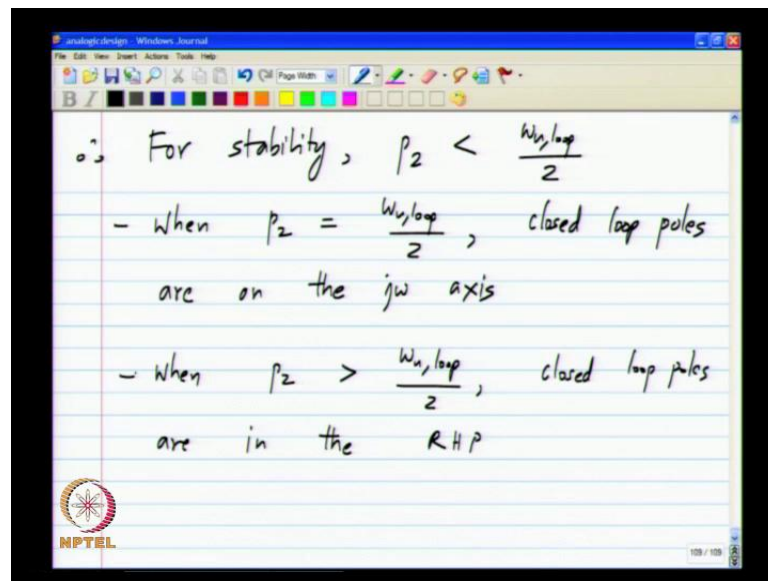 analogicdesign - Windows Journal
File Edit View Insert Actions Tools Help
Page Width
B I
∴ For stability, p₂ < ωu,loop / 2
- When p₂ = ωu,loop / 2 , closed loop poles
are on the jω axis
- When p₂ > ωu,loop / 2 , closed loop poles
are in the RHP
NPTEL
109 / 109